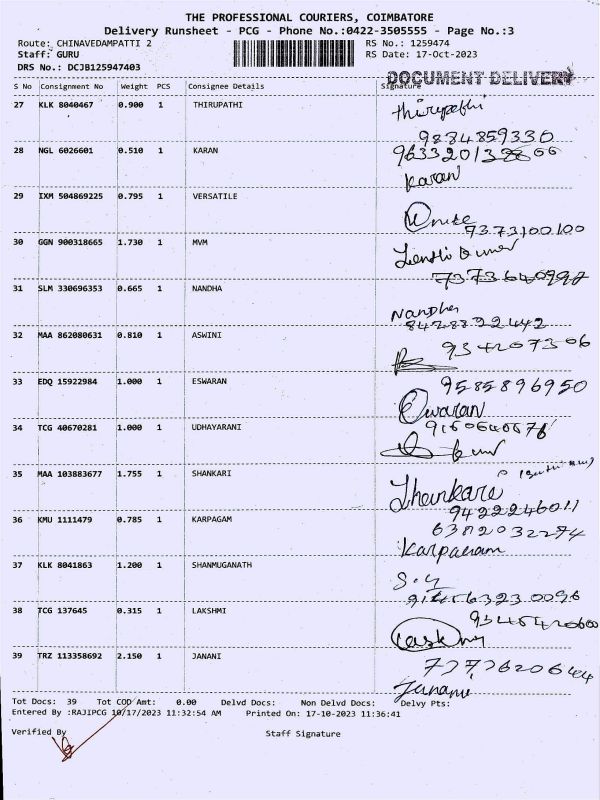 THE PROFESSIONAL COURIERS, COIMBATORE
Delivery Runsheet - PCG - Phone No.:0422-3505555 - Page No.:3
Route: CHINAVEDAMPATTI 2 RS No.: 1259474
Staff: GURU RS Date: 17-Oct-2023
DRS No.: DCJB125947403
DOCUMENT DELIVERY
S No Consignment No Weight PCS Consignee Details Signature
27 KLK 8040467 0.900 1 THIRUPATHI Thirupathi
9884859330
28 NGL 6026601 0.510 1 KARAN
Karan
29 IXM 504869225 0.795 1 VERSATILE
9373100100
30 GGN 900318665 1.730 1 MVM
31 SLM 330696353 0.665 1 NANDHA
Nandha
32 MAA 862080631 0.810 1 ASWINI
33 EDQ 15922984 1.000 1 ESWARAN 9585896950
34 TCG 40670281 1.000 1 UDHAYARANI
35 MAA 103883677 1.755 1 SHANKARI
9422246011
36 KMU 1111479 0.785 1 KARPAGAM 6382032274
Karpagam
37 KLK 8041863 1.200 1 SHANMUGANATH
38 TCG 137645 0.315 1 LAKSHMI
39 TRZ 113358692 2.150 1 JANANI
Janani
Tot Docs: 39 Tot COD Amt: 0.00 Delvd Docs: Non Delvd Docs: Delvy Pts:
Entered By :RAJIPCG 10/17/2023 11:32:54 AM Printed On: 17-10-2023 11:36:41
Verified By Staff Signature